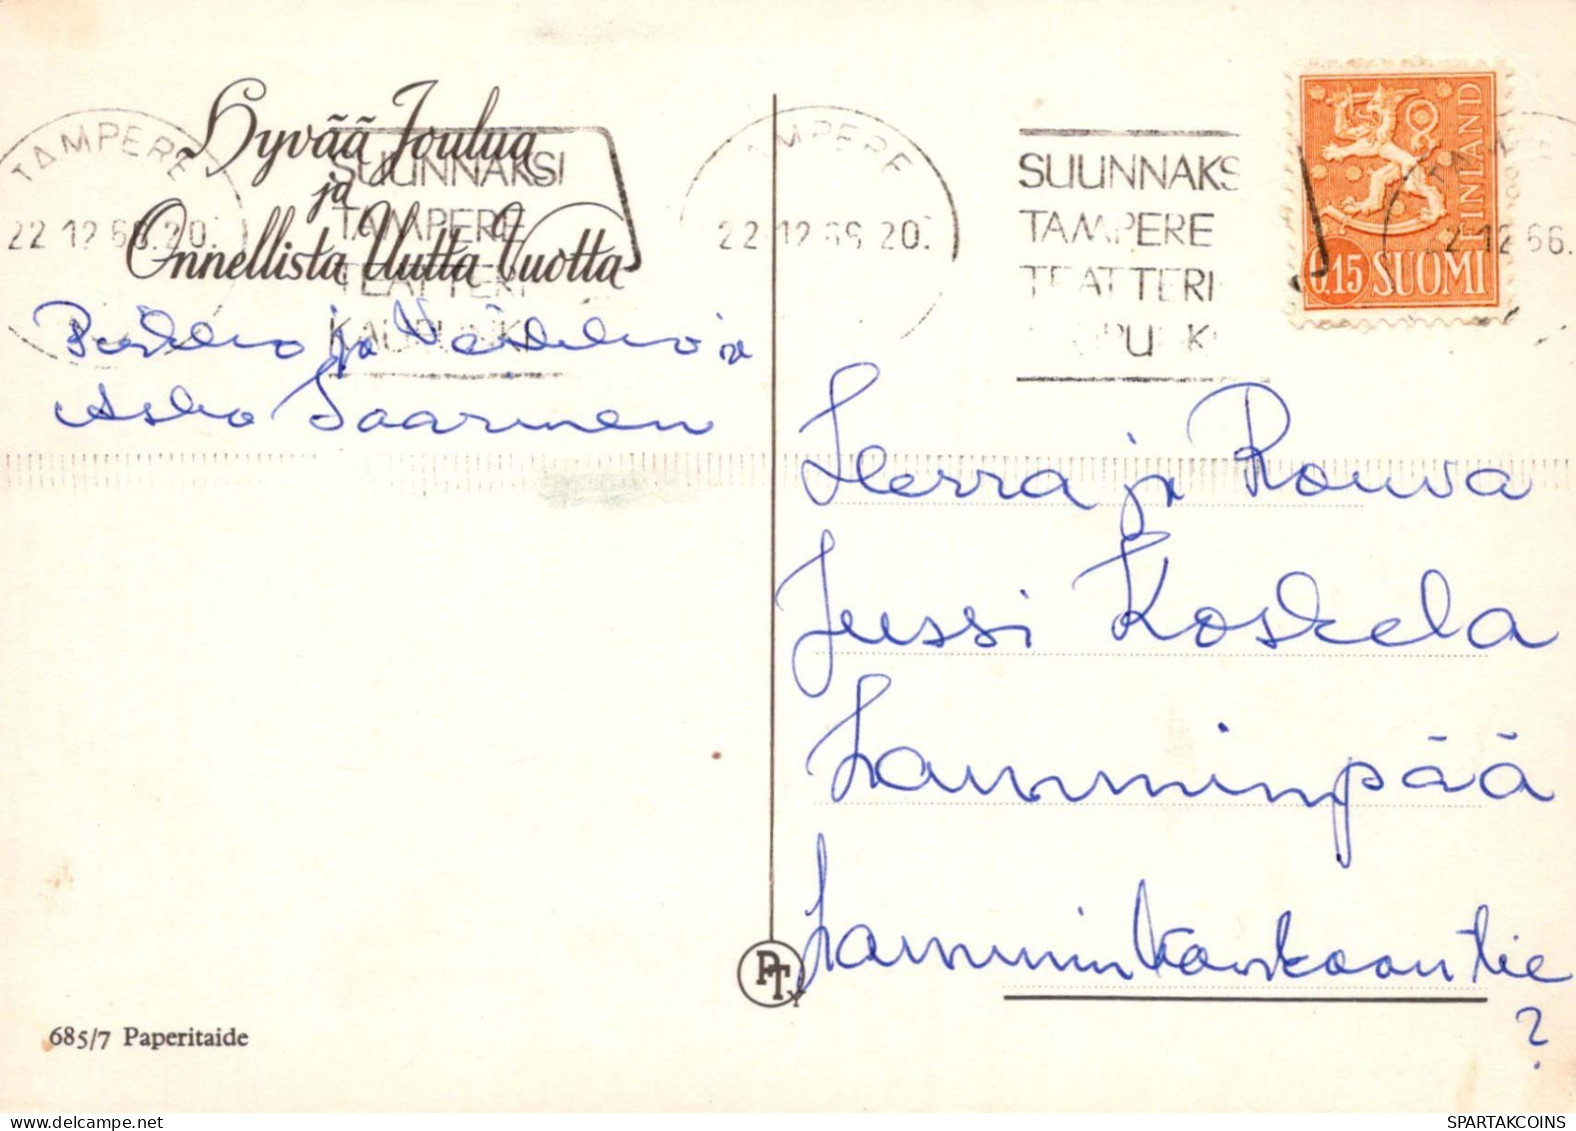 Hyvää Joulua
ja
Onnellista Uutta Vuotta
TAMPERE
22.12.66.20.
SUUNNAKSI
TAMPERE
TEATTERI
KAUPUNKI
Pirkko ja Veikko ja
Asko Saarinen
TAMPERE
22.12.66 20.
SUUNNAKS
TAMPERE
TEATTERI
FINLAND
0,15 SUOMI
22.12.66.
Herra ja Rouva
Jussi Koskela
Lamminpää
?
PT
685/7 Paperitaide
SPARTAKCOINS